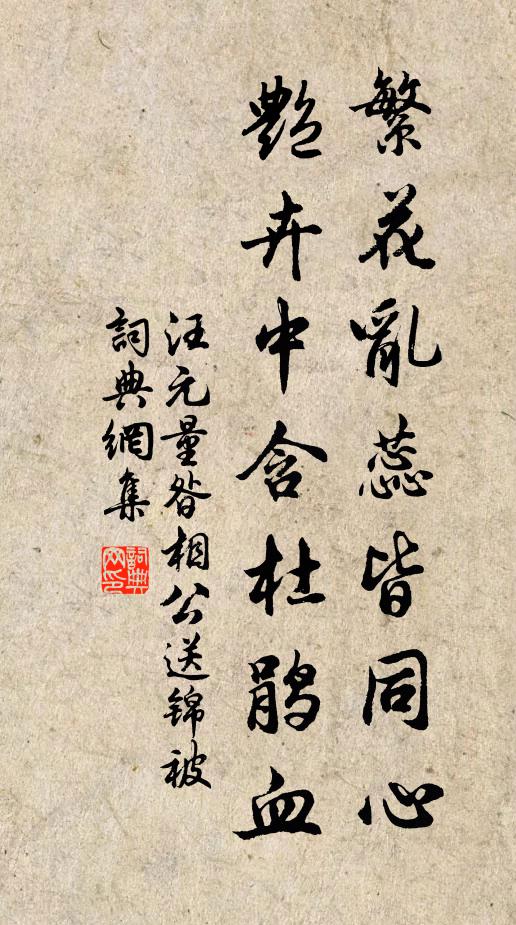 繁花亂蕊皆同心
艷卉中含杜鹃血
汪元量昝相公送錦被
詞典網集
詞典网印